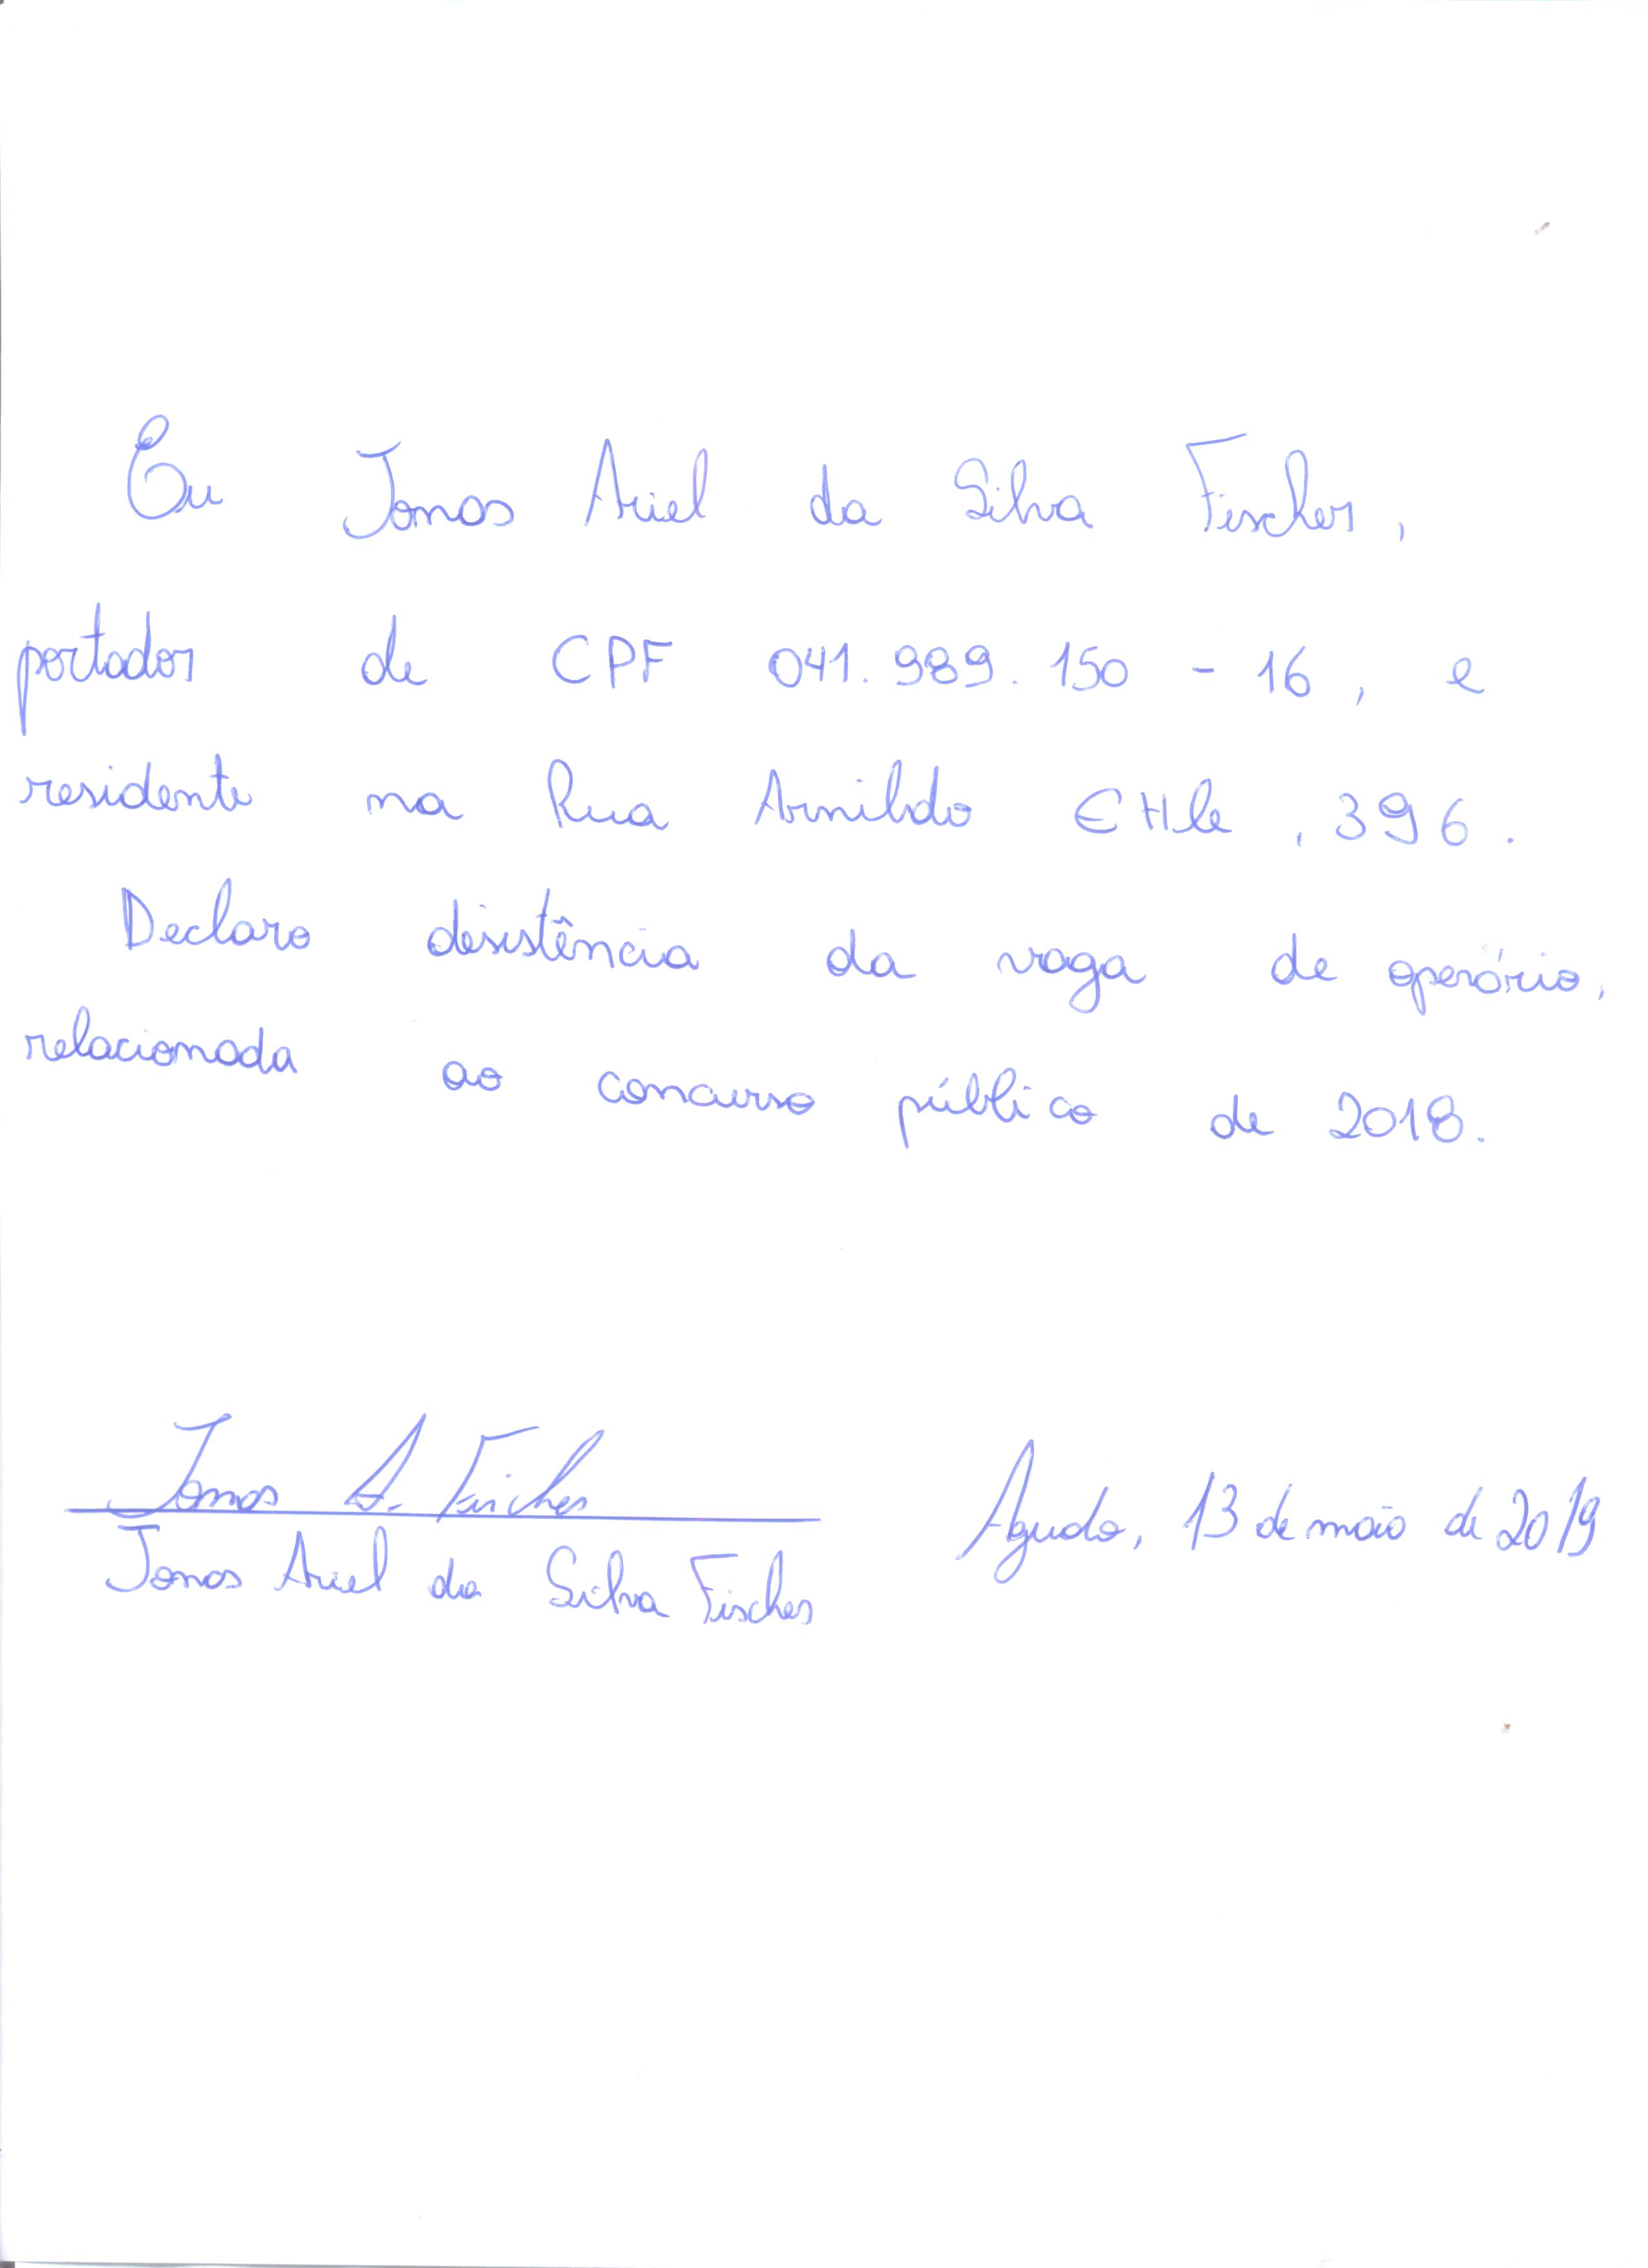 Eu Jonas Ariel da Silva Fischer,
portador de CPF 041.989.150-16, e
residente na Rua Arnildo Ehle, 396.
Declaro desistência da vaga de operário,
relacionada ao concurso público de 2018.
Jonas A. Fischer
Jonas Ariel da Silva Fischer
Agudo, 13 de maio de 2019